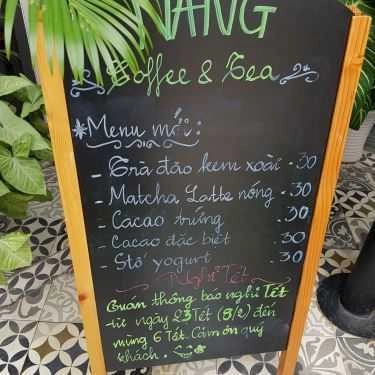 NẮNG
Coffee & Tea
Menu mới:
- Trà đào kem xoài . 30
- Matcha Latte nóng . 30
- Cacao trứng . 30
- Cacao đặc biệt . 30
- Stố yogurt . 30
Nghỉ Tết
Quán thông báo nghỉ Tết
từ ngày 23 Tết (3/2) đến
mùng 6 Tết. Cảm ơn quý
khách.